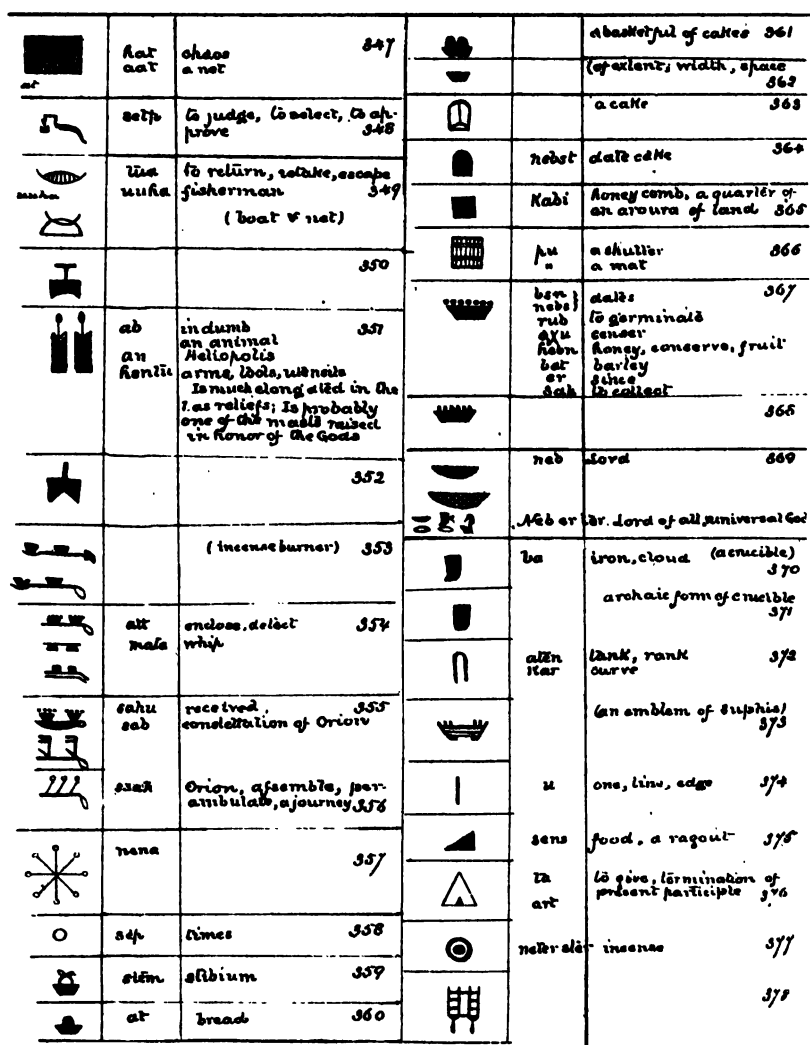 hat chaos 347
aat a net
at
setp to judge, to select, to ap-
prove 348
üa to return, retake, escape
uuha fisherman 349
(boat & net)
350
ab in dumb 351
an an animal
Heliopolis
hentu arms, tools, utensils
Is much elongated in the
bas reliefs; Is probably
one of the masts raised
in honor of the Gods
352
(incense burner) 353
att enclose, detect 354
mata whip
sahu received, 355
sab constellation of Orion
sxah Orion, assemble, per-
ambulate, a journey 356
nena
357
sep times 358
stem stibium 359
at bread 360
a basketful of cakes 361
(of extent; width, space
362
a cake 363
nebst date cake 364
Kabi honey comb, a quarter of
an aroura of land 365
pu a shutter 366
" a mat
bsn } dates 367
nebs }
rub to germinate
axu censer
hebn honey, conserve, fruit
bet barley
er since
sak to collect
368
neb Lord 369
Neb er ter. Lord of all, universal God
ba iron, cloud (a crucible)
370
archaic form of crucible
371
aten tank, rank 372
kar curve
(an emblem of Suphis)
373
u one, line, edge 374
sens food, a ragout 375
ta to give, termination of
art present participle 376
neter ster incense 377
378